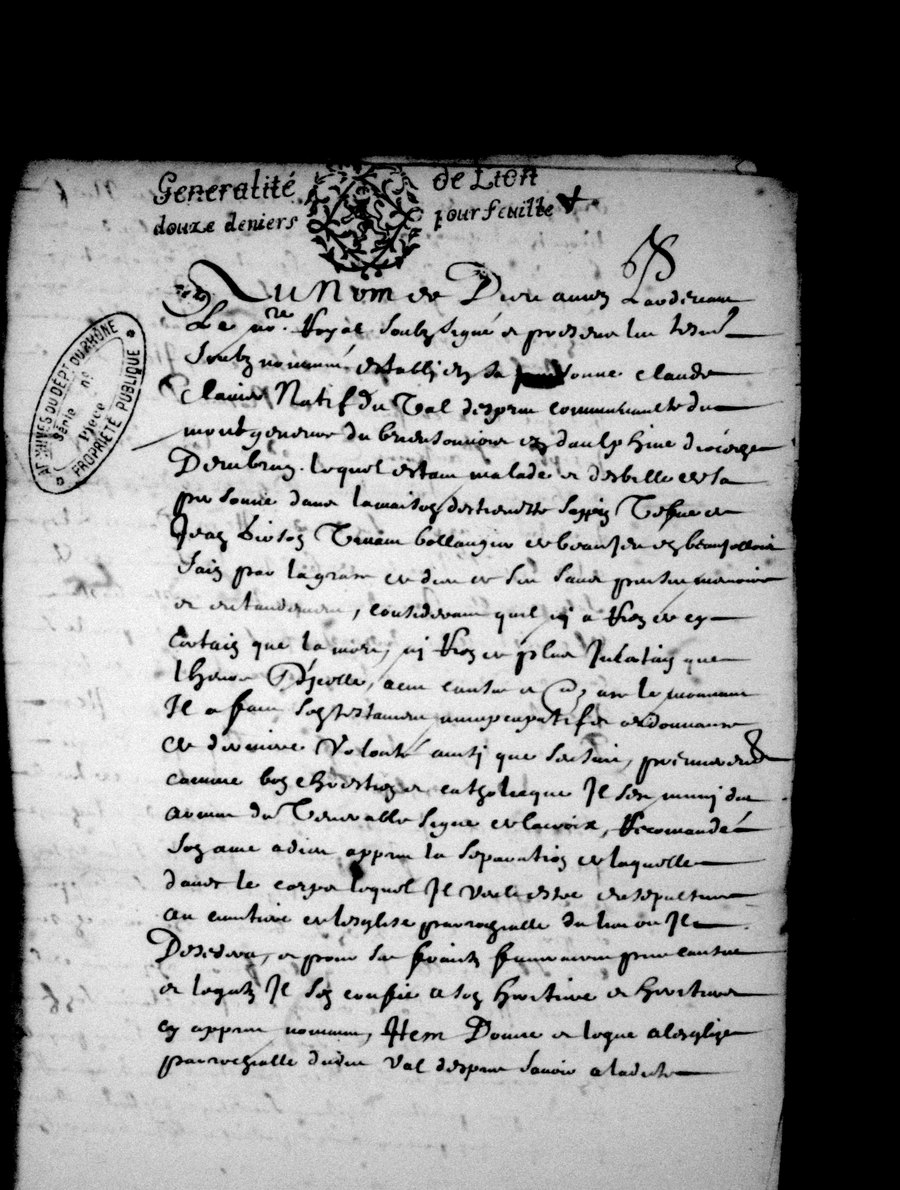 Generalité de Lion
douze deniers pour feuille
Au Nom de Dieu amen pardevant
Le nore Royal soubz signé et presence les tesmˢ
soubz nommés establj en sa personne claude
Claine Natif du Val despres communaulté du
montgenevre du brienconnois en daulphiné diocese
Dembrun, lequel estant malade et debille de sa
personne dans la maison destiennette Vefve de
Jean vivant bollangier de beaujeu en beaujollois
sain par la grace de dieu de ses sens memoire
et entandement, considerant quil nj a Rien de sy
certain que la mort, nj Rien de plus Incertain que
lheure Dicelle, a ceste cause et
Il a faict son testament nuncupatif et ordonnance
de derniere Volonté ainsj que sensuit, premierement
comme bon chrestien et catholicque Il sest munj du
du Venerable signe de la croix, Recomandé
son ame a dieu appres la separation de laquelle
davec le corps lequel Il veult estre ensepulturé
au cimitiere de lesglise parrochialle du lieu ou Il
Decedera, et pour ses fraictz funeraires pieuses
et legatz Il sen confie a son heritiere et heritiere
cy appres nommés, Item Donne et legue a lesglise
parrochialle dudict Val despres savoir a ladicte
ARCHIVES DU DÉPT DU RHÔNE
Série no
Pièce
PROPRIÉTÉ PUBLIQUE